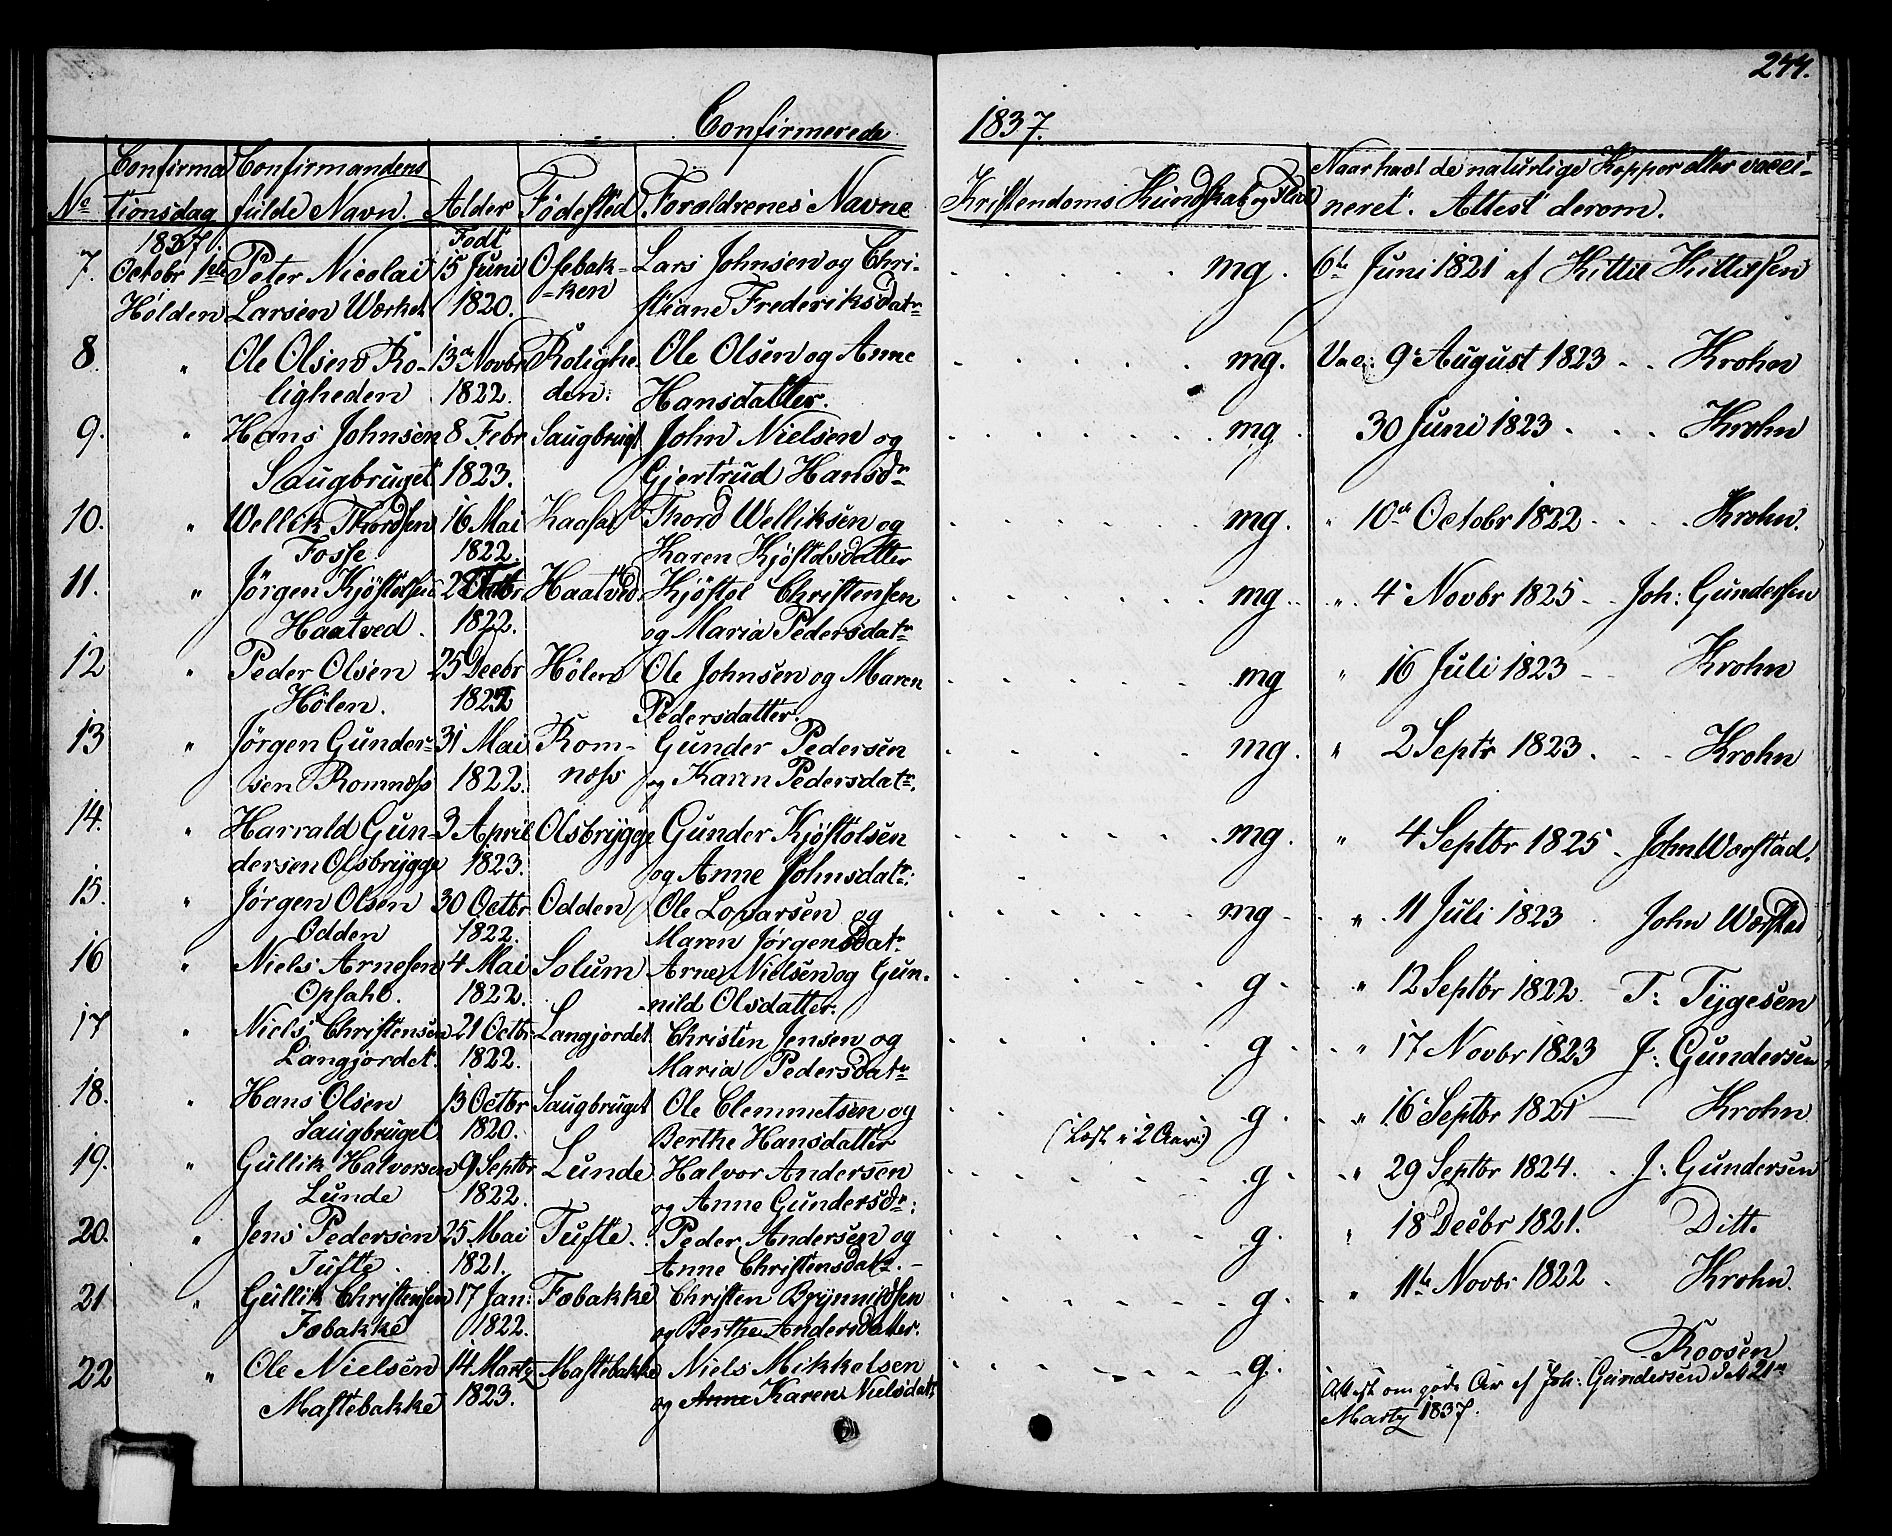 244.
Confirmerede 1837.
No Confirmationsdag Confirmandens fulde Navn. Alder Fødested Forældrenes Navne Kristendoms Kundskab og Flid Naar havt de naturlige Kopper eller vaccineret. Attest derom.
1837. Født
7. Octobr 1ste Peter Nicolai 15 Juni Ofebak- Lars Johnsen og Chri- mg. 6te Juni 1821 af Kittil Kittilsen
Holden Larsen Værket 1820. -ken stiane Frederiksdatr
8. " Ole Olsen Ro- 13de Novbr Rolighe- Ole Olsen og Anne mg. Vac: 9 August 1823 - . Krohn
ligheden 1822. den: Hansdatter.
9. " Hans Johnsen 8 Febr Saugbrugt John Nielsen og mg 30 Juni 1823 . . . Krohn
Saugbruget 1823. Gjertrud Hansdr
10. " Wellik Thordsen 16 Mai Kaasa Thord Welliksen og mg. " 10de Octobr 1822 . . . . Krohn.
Fosse 1822. Karen Kjøstolsdatter
11. " Jørgen Kjøstolsen 28 Haatved Kjøstol Christensen mg.. " 4 Novbr 1825 - Joh: Gundersen
Haatved. 1822. og Maria Pedersdatr
12 " Peder Olsen 25 Decbr Hølen Ole Johnsen og Maren mg " 16 Juli 1823 - - Krohn
Hølen. 1822 Pedersdatter.
13 " Jørgen Gunder- 31 Mai Rom- Gunder Pedersen mg. " 2 Septr 1823. . - - Krohn
sen Romnæss 1822. næss og Karen Pedersdatr.
14. " Harrald Gun- 3 April Olsbrygge Gunder Kjøstolsen mg. " 4 Septbr 1825 - John Worstad.
dersen Olsbrygge 1823. og Anne Johnsdatr:
15. " Jørgen Olsen 30 Octbr Odden Ole Lovarsen og mg - " 11 Juli 1823 John Worstad
Odden 1822. Maren Jørgensdatr
16 " Niels Arnesen 4 Mai Solum Arne Nielsen og Gun- g " 12 Septbr 1822. T: Tygesen
Opsahl. 1822. -nild Olsdatter.
17 " Niels Christensen 21 Octbr Langjordet Christen Jensen og g " 17 Novbr 1823 J: Gundersen
Langjordet. 1822. Maria Pedersdatr
18. " Hans Olsen 13 Octbr Saugbruget Ole Clemmetsen og (Læst i 2 Aar:) g " 16 Septbr 1821 — Krohn
Saugbruget. 1820. Berthe Hansdatter
19. " Gullik Halvorsen 9 Septbr Lunde Halvor Andersen g " 29 Septbr 1824. . J: Gundersen
Lunde 1822. og Anne Gundersdr:
20. " Jens Pedersen 25 Mai Tufte. Peder Andersen og g. " 18 Decbr 1821. Ditt.
Tufte. 1821. Anne Christensdatr. -
21 " Gullik Christensen 17 Jan: Fæbakke Christen Brynnildsen g " 11te Novbr 1822 . Krohn.
Fæbakke 1822. og Berthe Andersdatter.
22 " Ole Nielsen 14 Martz Mastebakke Niels Mikkelsen g. Roosen
Mastebakke 1823. og Anne Karen Nielsdatr Attest om gode Ar af Joh: Gundersen d 21de
Martz 1837.